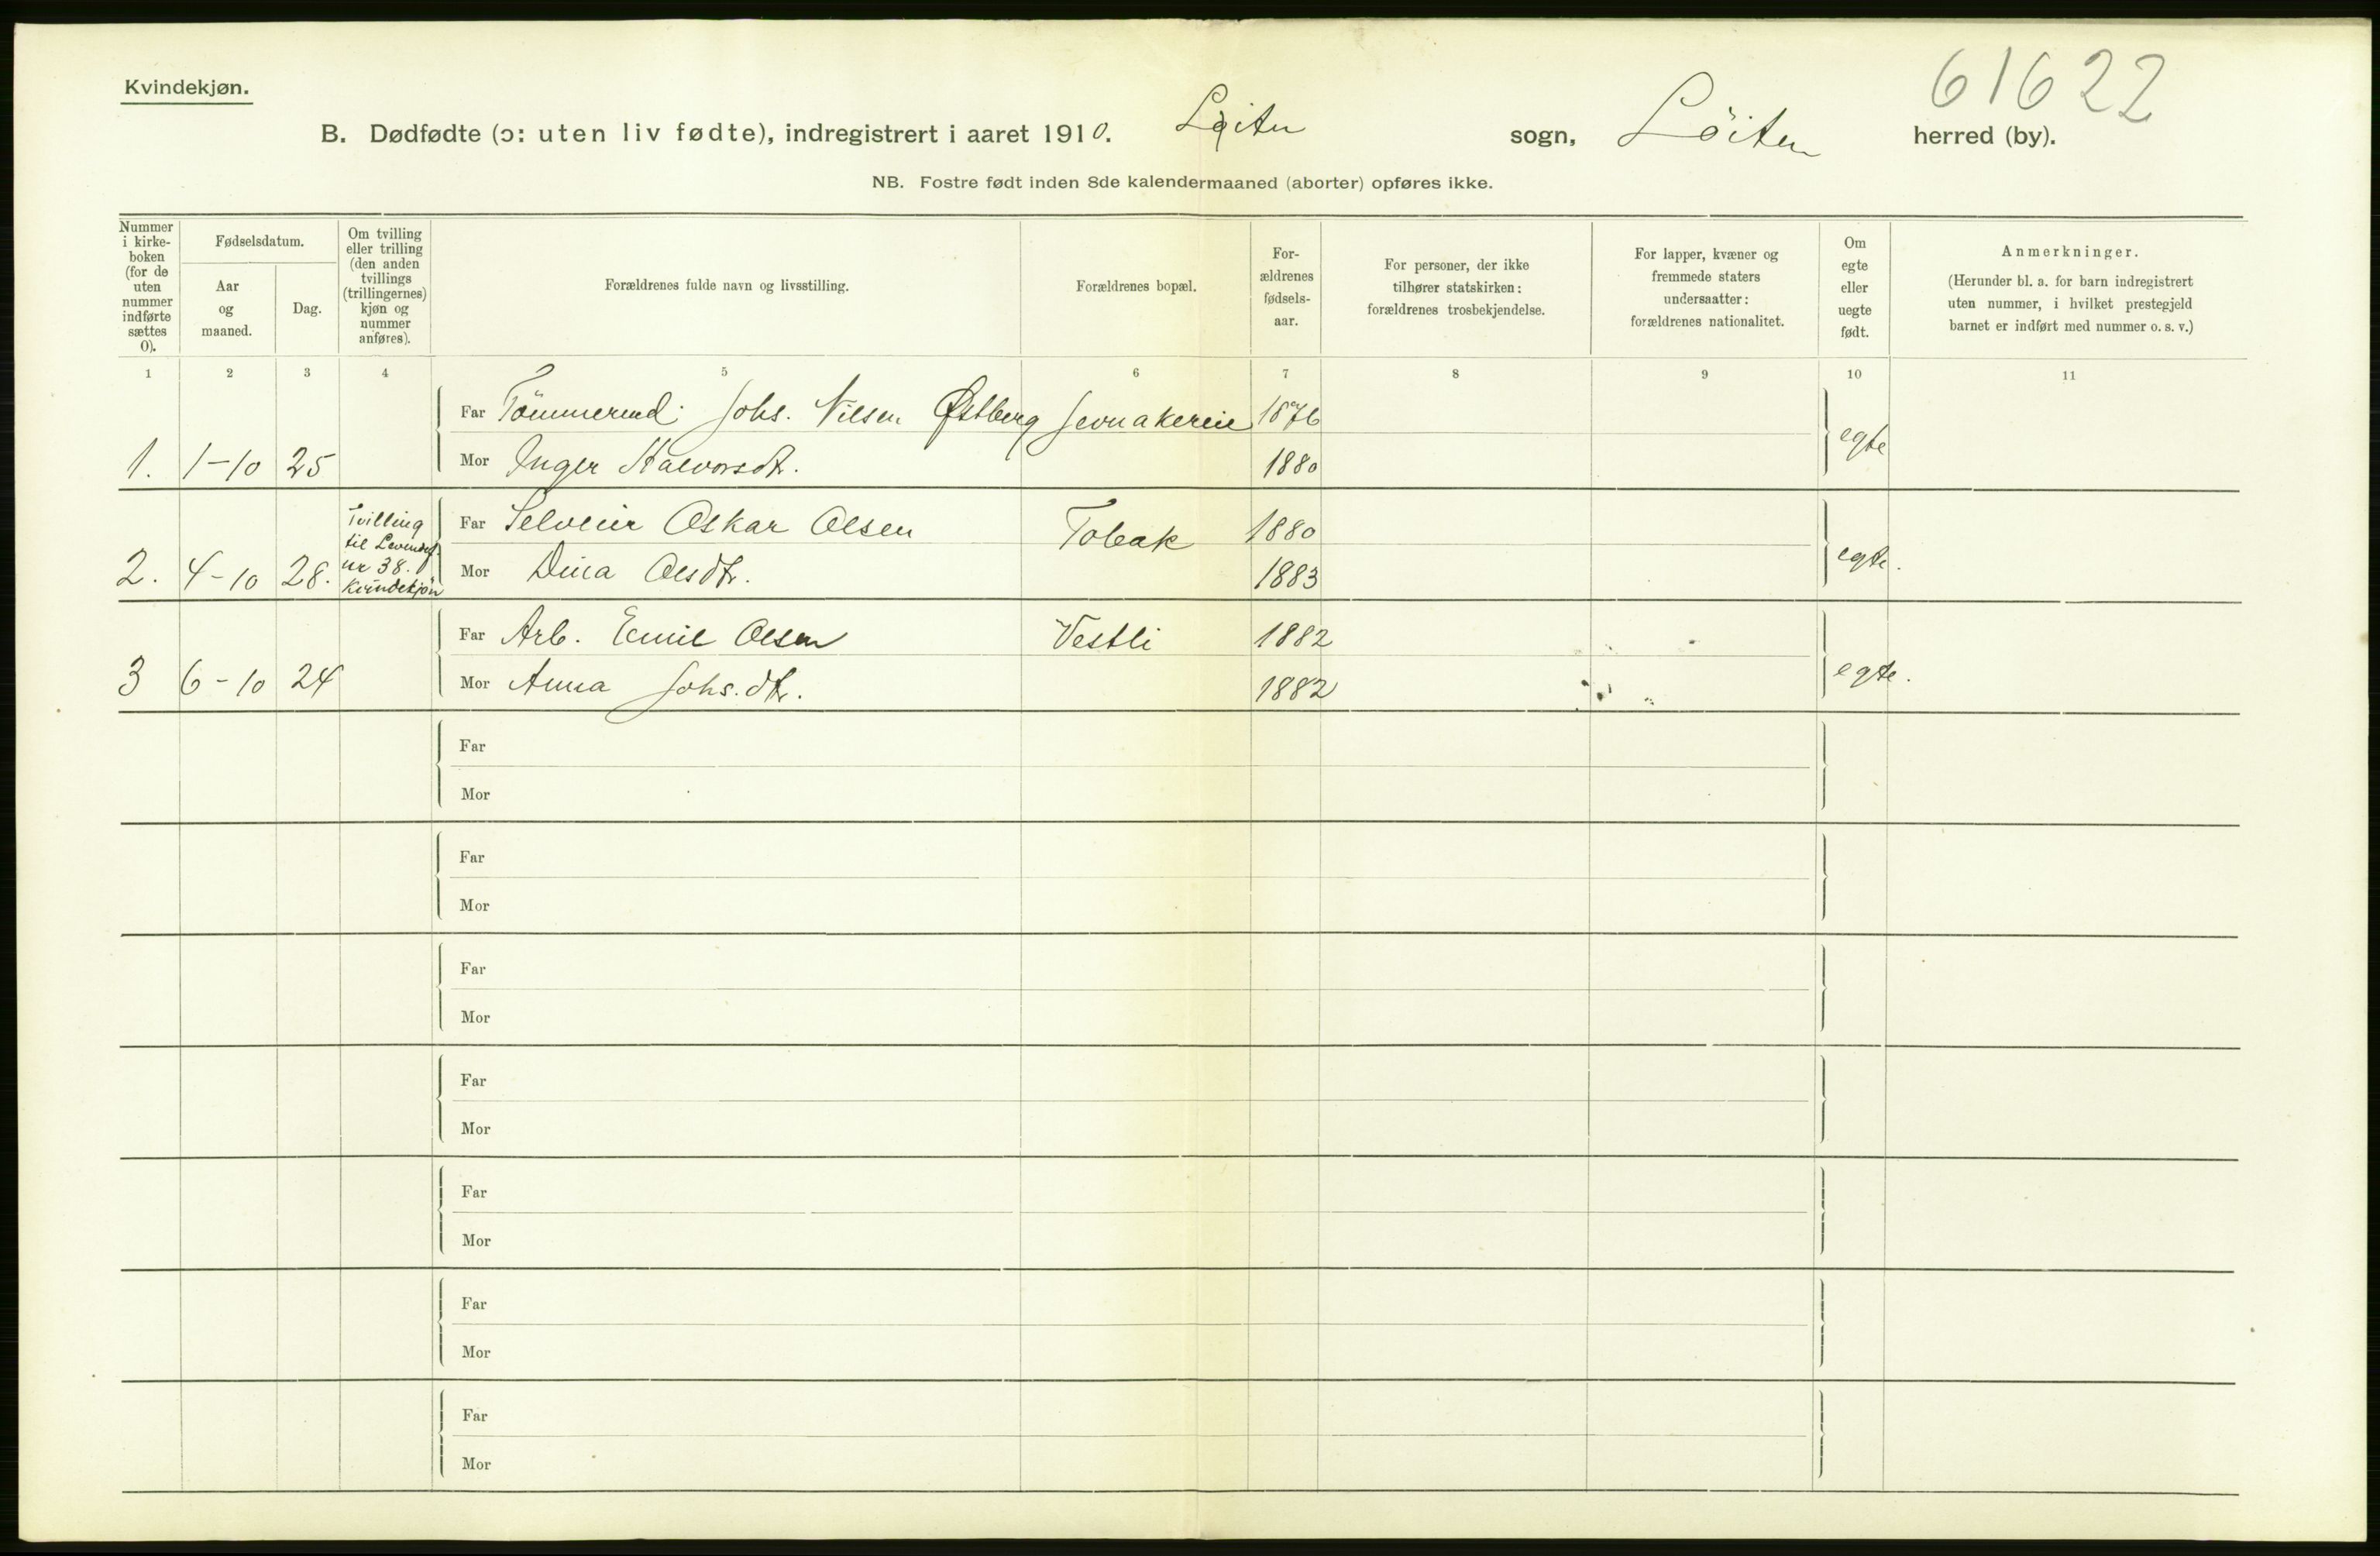 Kvindekjøn.
61622
B. Dødfødte (ɔ: uten liv fødte), indregistrert i aaret 1910. Løiten sogn, Löiten herred (by).
NB. Fostre født inden 8de kalendermaaned (aborter) opføres ikke.
Nummer i kirke-boken (for de uten nummer indførte sættes 0).
Fødselsdatum.
Aar og maaned.
Dag.
Om tvilling eller trilling (den anden tvillings (trillingernes) kjøn og nummer anføres).
Forældrenes fulde navn og livsstilling.
Forældrenes bopæl.
For-ældrenes fødsels-aar.
For personer, der ikke tilhører statskirken: forældrenes trosbekjendelse.
For lapper, kvæner og fremmede staters undersaatter: forældrenes nationalitet.
Om egte eller uegte født.
Anmerkninger.
(Herunder bl. a. for barn indregistrert uten nummer, i hvilket prestegjeld barnet er indført med nummer o. s. v.)
1 2 3 4 5 6 7 8 9 10 11
Far Tömmermd. Johs. Nilsen Østberg 1876
1. 1-10 25 Mor Inger Halvorsdt. 1880 egte
Tvilling til Levendef. nr 38. Kvindekjön
Far Selveier Oskar Olsen 1880
2. 4-10 28. Mor Dina Olsdtr. 1883 egte.
Far Arb. Emil Olsen Vestli 1882
3 6-10 24 Mor Anna Johs.dtr. 1882 egte.
Far
Mor
Far
Mor
Far
Mor
Far
Mor
Far
Mor
Far
Mor
Far
Mor